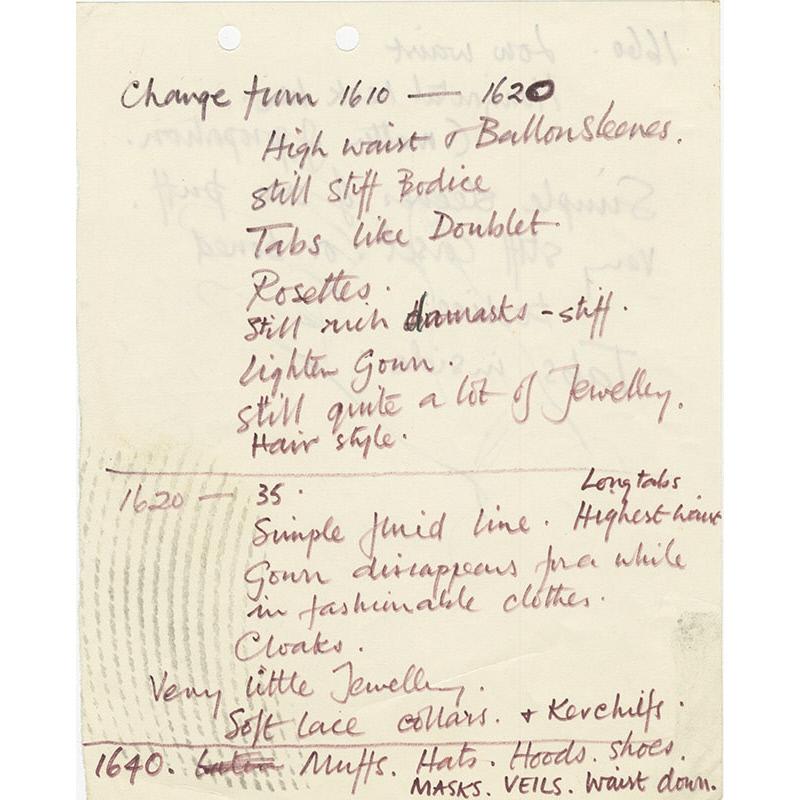 Change from 1610 — 1620
High waist & Ballon Sleeves.
still stiff Bodice
Tabs like Doublet.
Rosettes.
Still rich damasks - stiff.
Lighten Gown.
still quite a lot of Jewelley.
Hair style.
1620 — 35.
Long tabs
Simple fluid line. Highest waist
Gown disappears for a while
in fashionable clothes.
Cloaks.
Very little Jewellery.
Soft lace collars. & Kerchifs.
1640. Muffs. Hats. Hoods. Shoes.
MASKS. VEILS. Waist down.